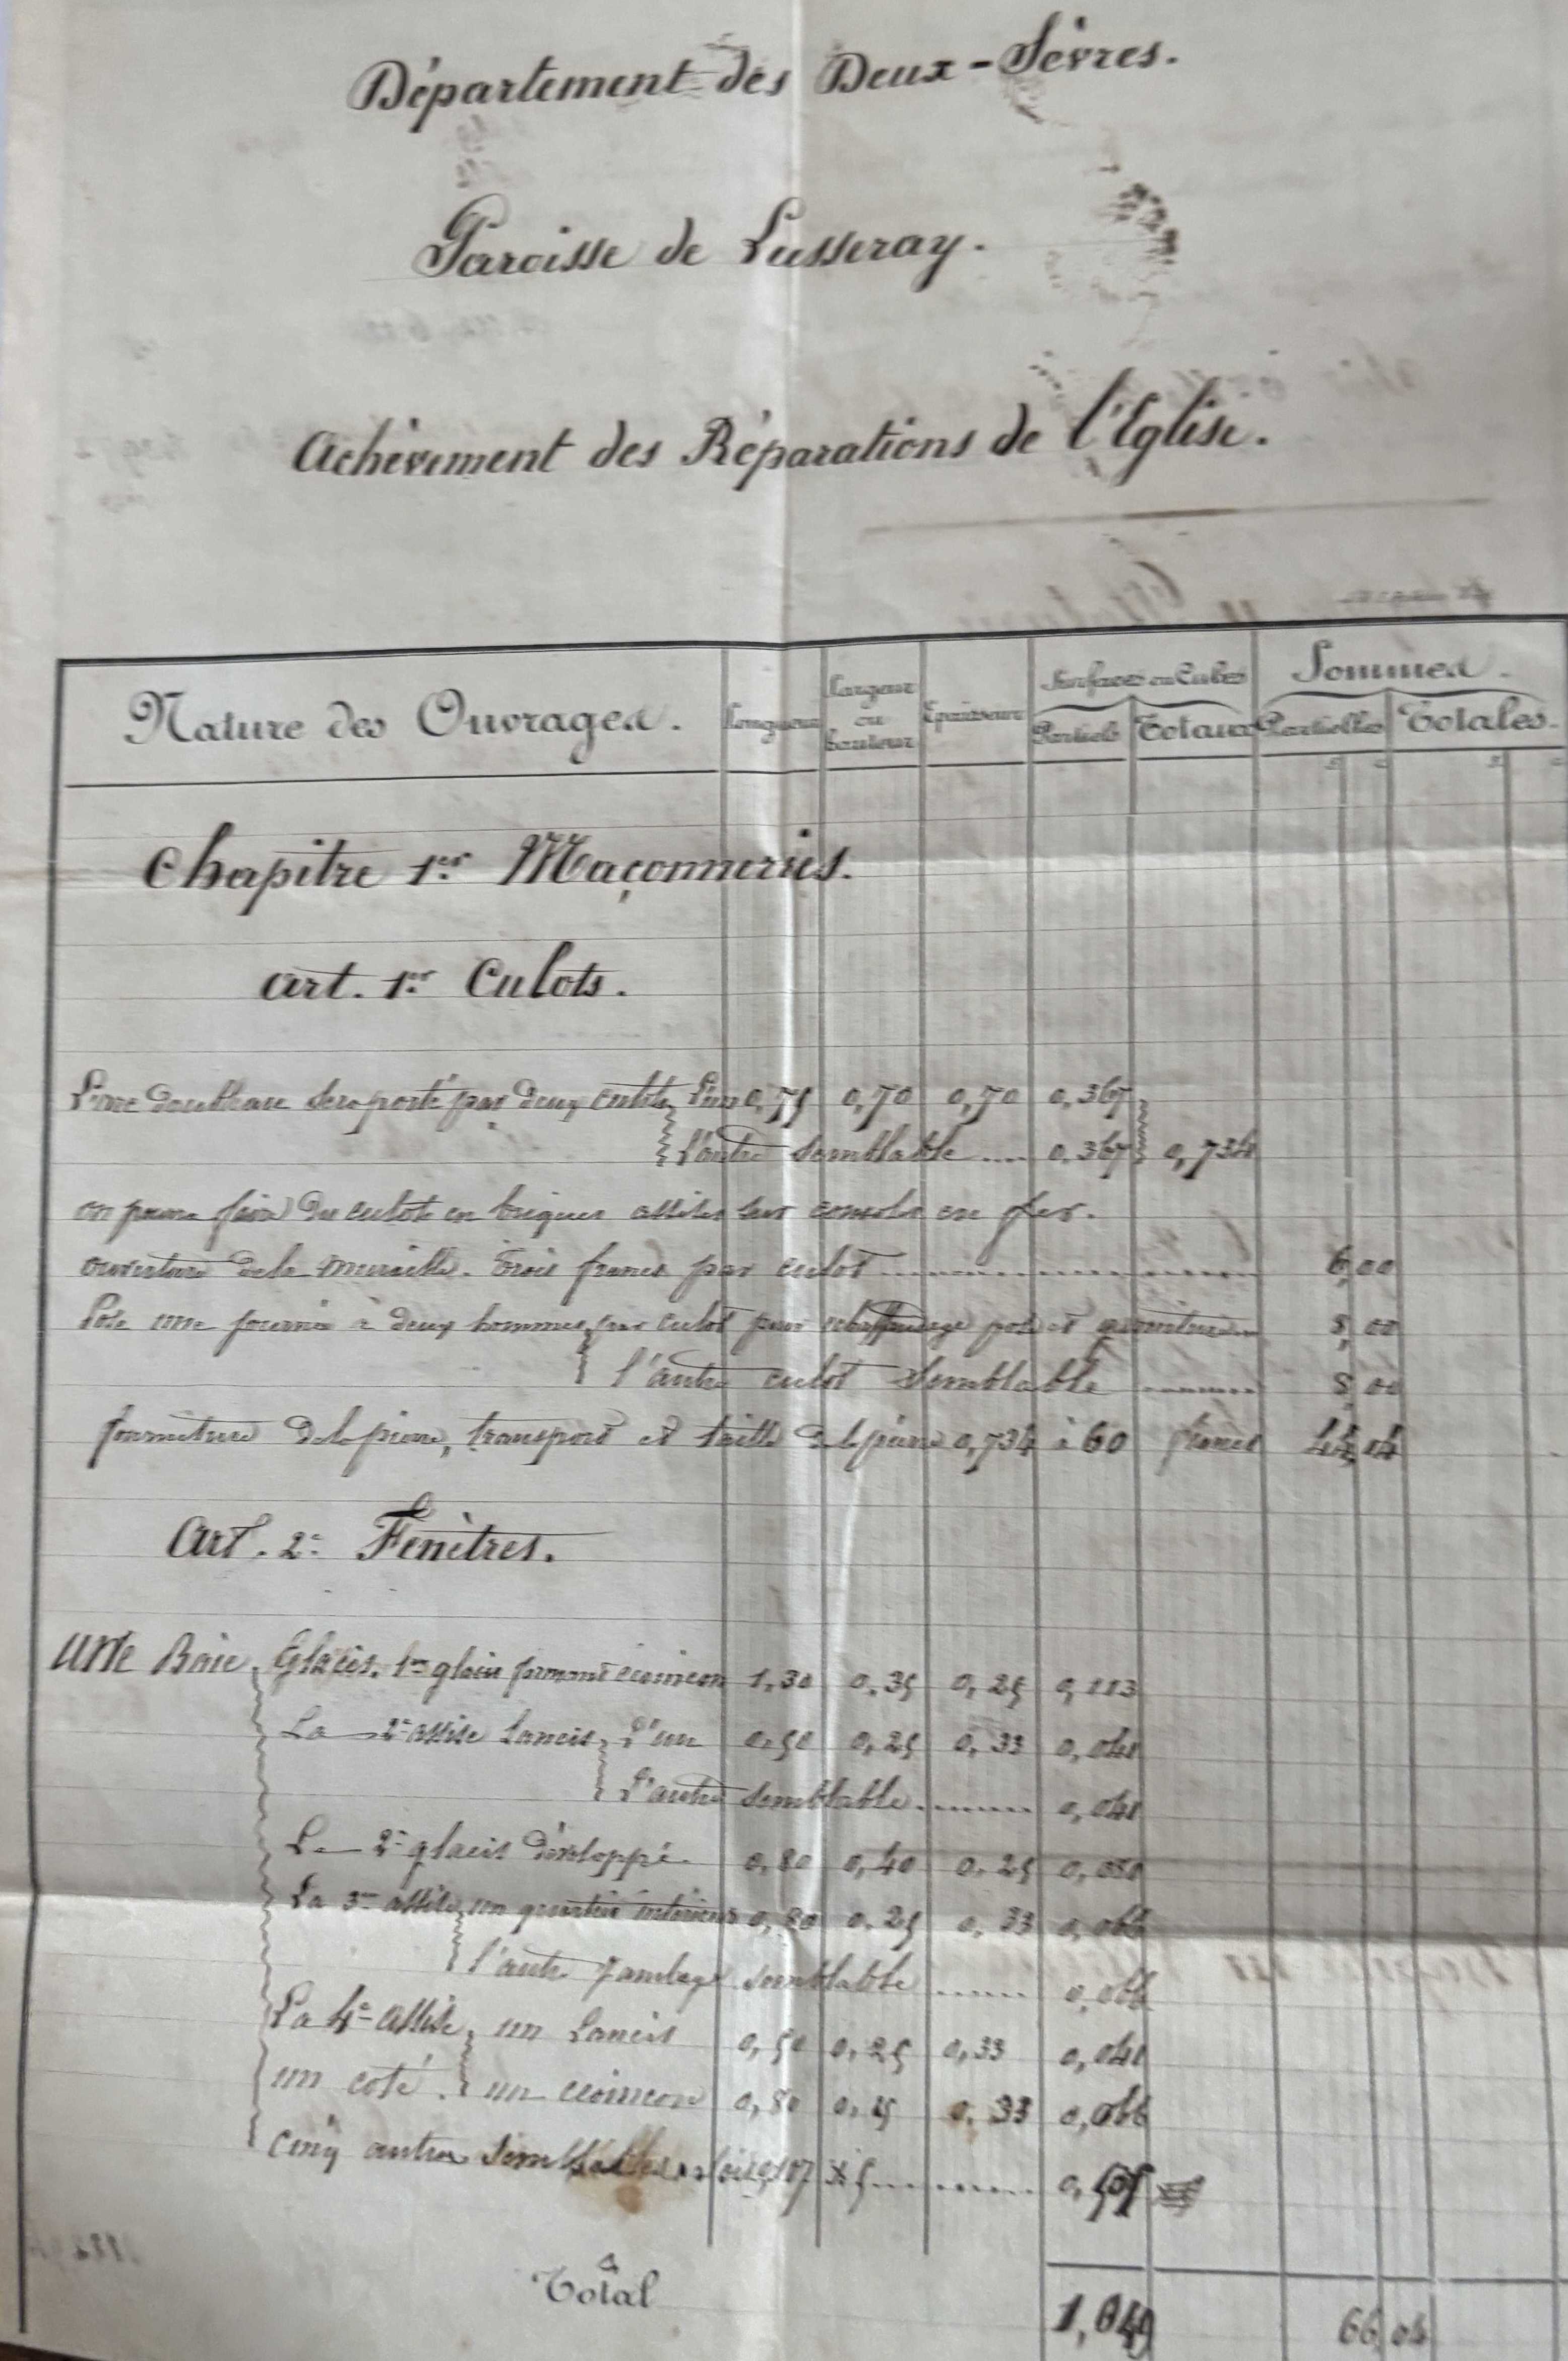 Département des Deux-Sèvres.
Paroisse de Lusseray.
Achèvement des Réparations de l'Eglise.
Nature des Ouvrages. Longueur Largeur ou hauteur Epaisseur Surfaces ou Cubes Partiels Totaux Sommes. Partielles Totales.
Chapitre 1er Maçonneries.
Art. 1er Culots.
L'arc doubleau sera porté par deux culots, l'un 0,75 0,70 0,70 0,367
l'autre semblable .... 0,367 0,734
on pourra faire des culots en briques assises sur consoles en fer.
ouverture de la muraille. Trois francs par culot 6,00
Pose une journée à deux hommes par culot pour pose et 8,00
l'autre culot semblable 8,00
fourniture de la pierre, transport et taille de la pierre 0,734 à 60 francs 44,04
Art. 2e Fenètres.
Une Baie. Glacis. 1er glacis formant écoinçon 1,30 0,35 0,25 0,113
La 2e assise lancis, l'un 0,50 0,25 0,33 0,041
l'autre semblable 0,041
Le 2e glacis développé 0,80 0,40 0,25 0,080
La 3me assise, un quartier intérieur 0,80 0,25 0,33 0,066
l'autre jambage semblable ...... 0,066
La 4e assise, un lancis 0,50 0,25 0,33 0,041
un coté. un écoinçon 0,80 0,25 0,33 0,066
cinq autres semblables 0,107 x 5 0,535
Total 1,049 66,04